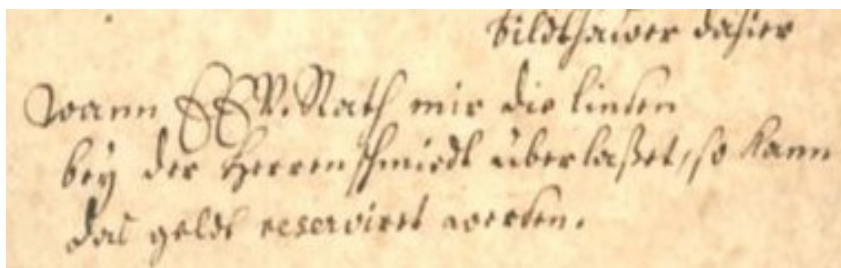 bildthawer dahier
wann EE W. Rath mir die linden
bey der Herrenschmidt überlaßet, so kann
das geldt reserviret werden.